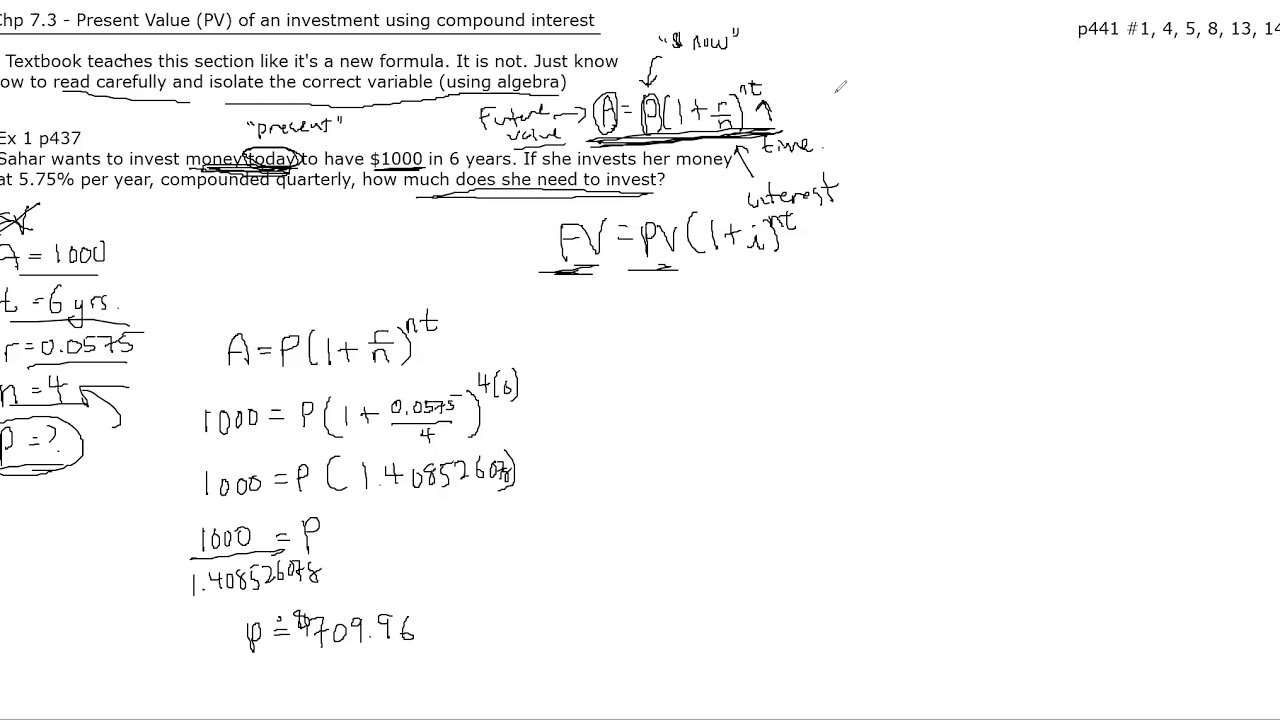 Chp 7.3 - Present Value (PV) of an investment using compound interest
p441 #1, 4, 5, 8, 13, 14
"$ now"
Textbook teaches this section like it's a new formula. It is not. Just know
ow to read carefully and isolate the correct variable (using algebra)
Future value → A = P(1 + r/n)^nt
time.
interest
"present"
Ex 1 p437
Sahar wants to invest money today to have $1000 in 6 years. If she invests her money
at 5.75% per year, compounded quarterly, how much does she need to invest?
FV = PV(1 + i)^nt
A = 1000
t = 6 yrs.
r = 0.0575
n = 4
P = ?
A = P(1 + r/n)^nt
1000 = P(1 + 0.0575/4)^4(6)
1000 = P(1.408526078)
1000/1.408526078 = P
P ≐ $709.96